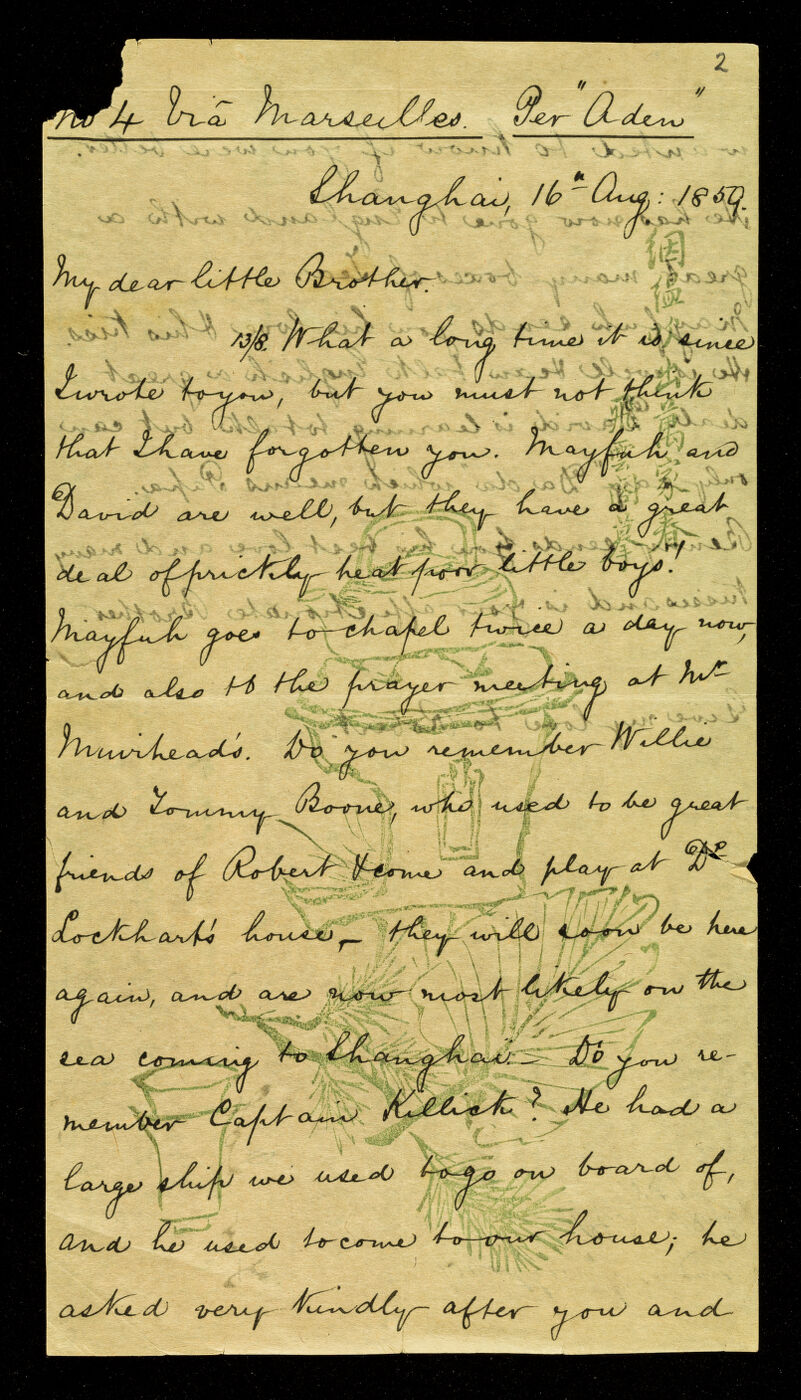 2
no 4 Viâ Marseilles. Per "Aden"
Shanghai, 16th Aug: 1859.
My dear little Brother.
13/8. What a long time it is since
I wrote to you, but you must not think
that I have forgotten you. Mayfuh and
David are well, but they have a great
deal of prickly heat poor little boys!
Mayfuh goes to chapel twice a day now,
and also to the prayer meeting at Mr
Muirhead's. Do you remember Willie
and Tommy Boone, who used to be great
friends of Robert & come and play at Dr
Lockhart's house, — they will soon be here
again, and are now most likely on the
sea coming to Shanghai. — Do you re-
member Captain Killick? He had a
large ship we used to go on board of,
and he used to come to our house; he
asked very kindly after you and